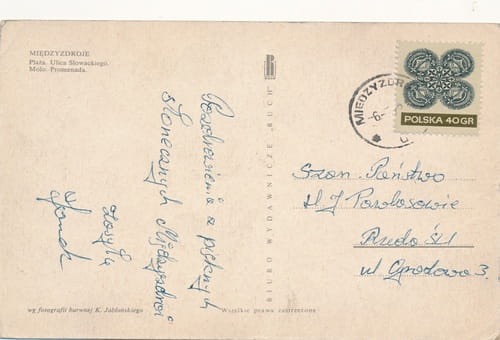 MIĘDZYZDROJE
Plaża. Ulica Słowackiego.
Molo. Promenada.
Pozdrowienia z pięknych
słonecznych Międzyzdroi
zasyła
BIURO WYDAWNICZE „RUCH"
MIĘDZYZDR
POLSKA 40 GR
Szan. Państwo
H J Pawłosowie
Ruda Śl
ul Ogrodowa 3
wg fotografii barwnej K. Jabłońskiego
Wszelkie prawa zastrzeżone